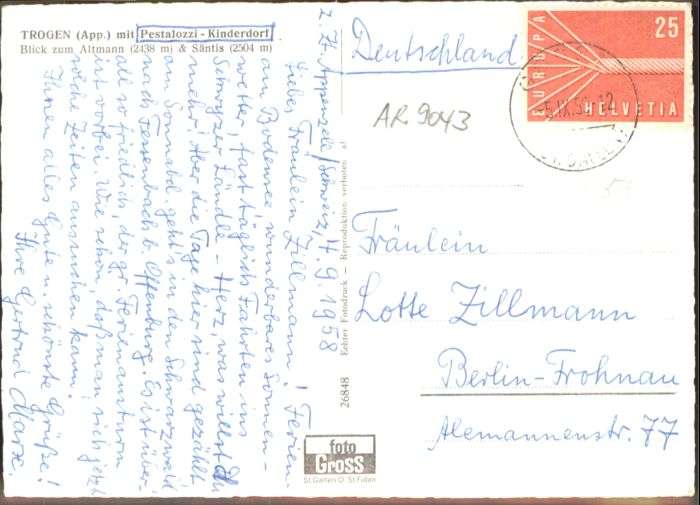 TROGEN (App.) mit Pestalozzi-Kinderdorf
Blick zum Altmann (2438 m) & Säntis (2504 m)
z. Zt. Appenzell/Schweiz, 4.9.1958
Liebes Fräulein Zillmann! Ferien
am Bodensee, wunderbares Sonnen-
wetter, fast täglich Fahrten ins
Schwyzer Ländle - Herz, was willst Du
mehr! Aber die Tage hier sind gezählt
am Sonnabd. geht's in den Schwarzwald
nach Fessenbach b. Offenburg. Es ist über-
all so friedlich, der gr. Ferienansturm
ist vorbei. Wie schön, daß man sich jetzt
solche Zeiten aussuchen kann.
Ihnen alles Gute u. schönste Grüße!
Ihre Gertrud Marx.
26848 Echter Fotodruck — Reproduktion verboten
foto
Gross
St. Gallen O St. Fiden
Deutschland
AR 9043
EUROPA
25
HELVETIA
Fräulein
Lotte Zillmann
Berlin-Frohnau
Alemannenstr. 77